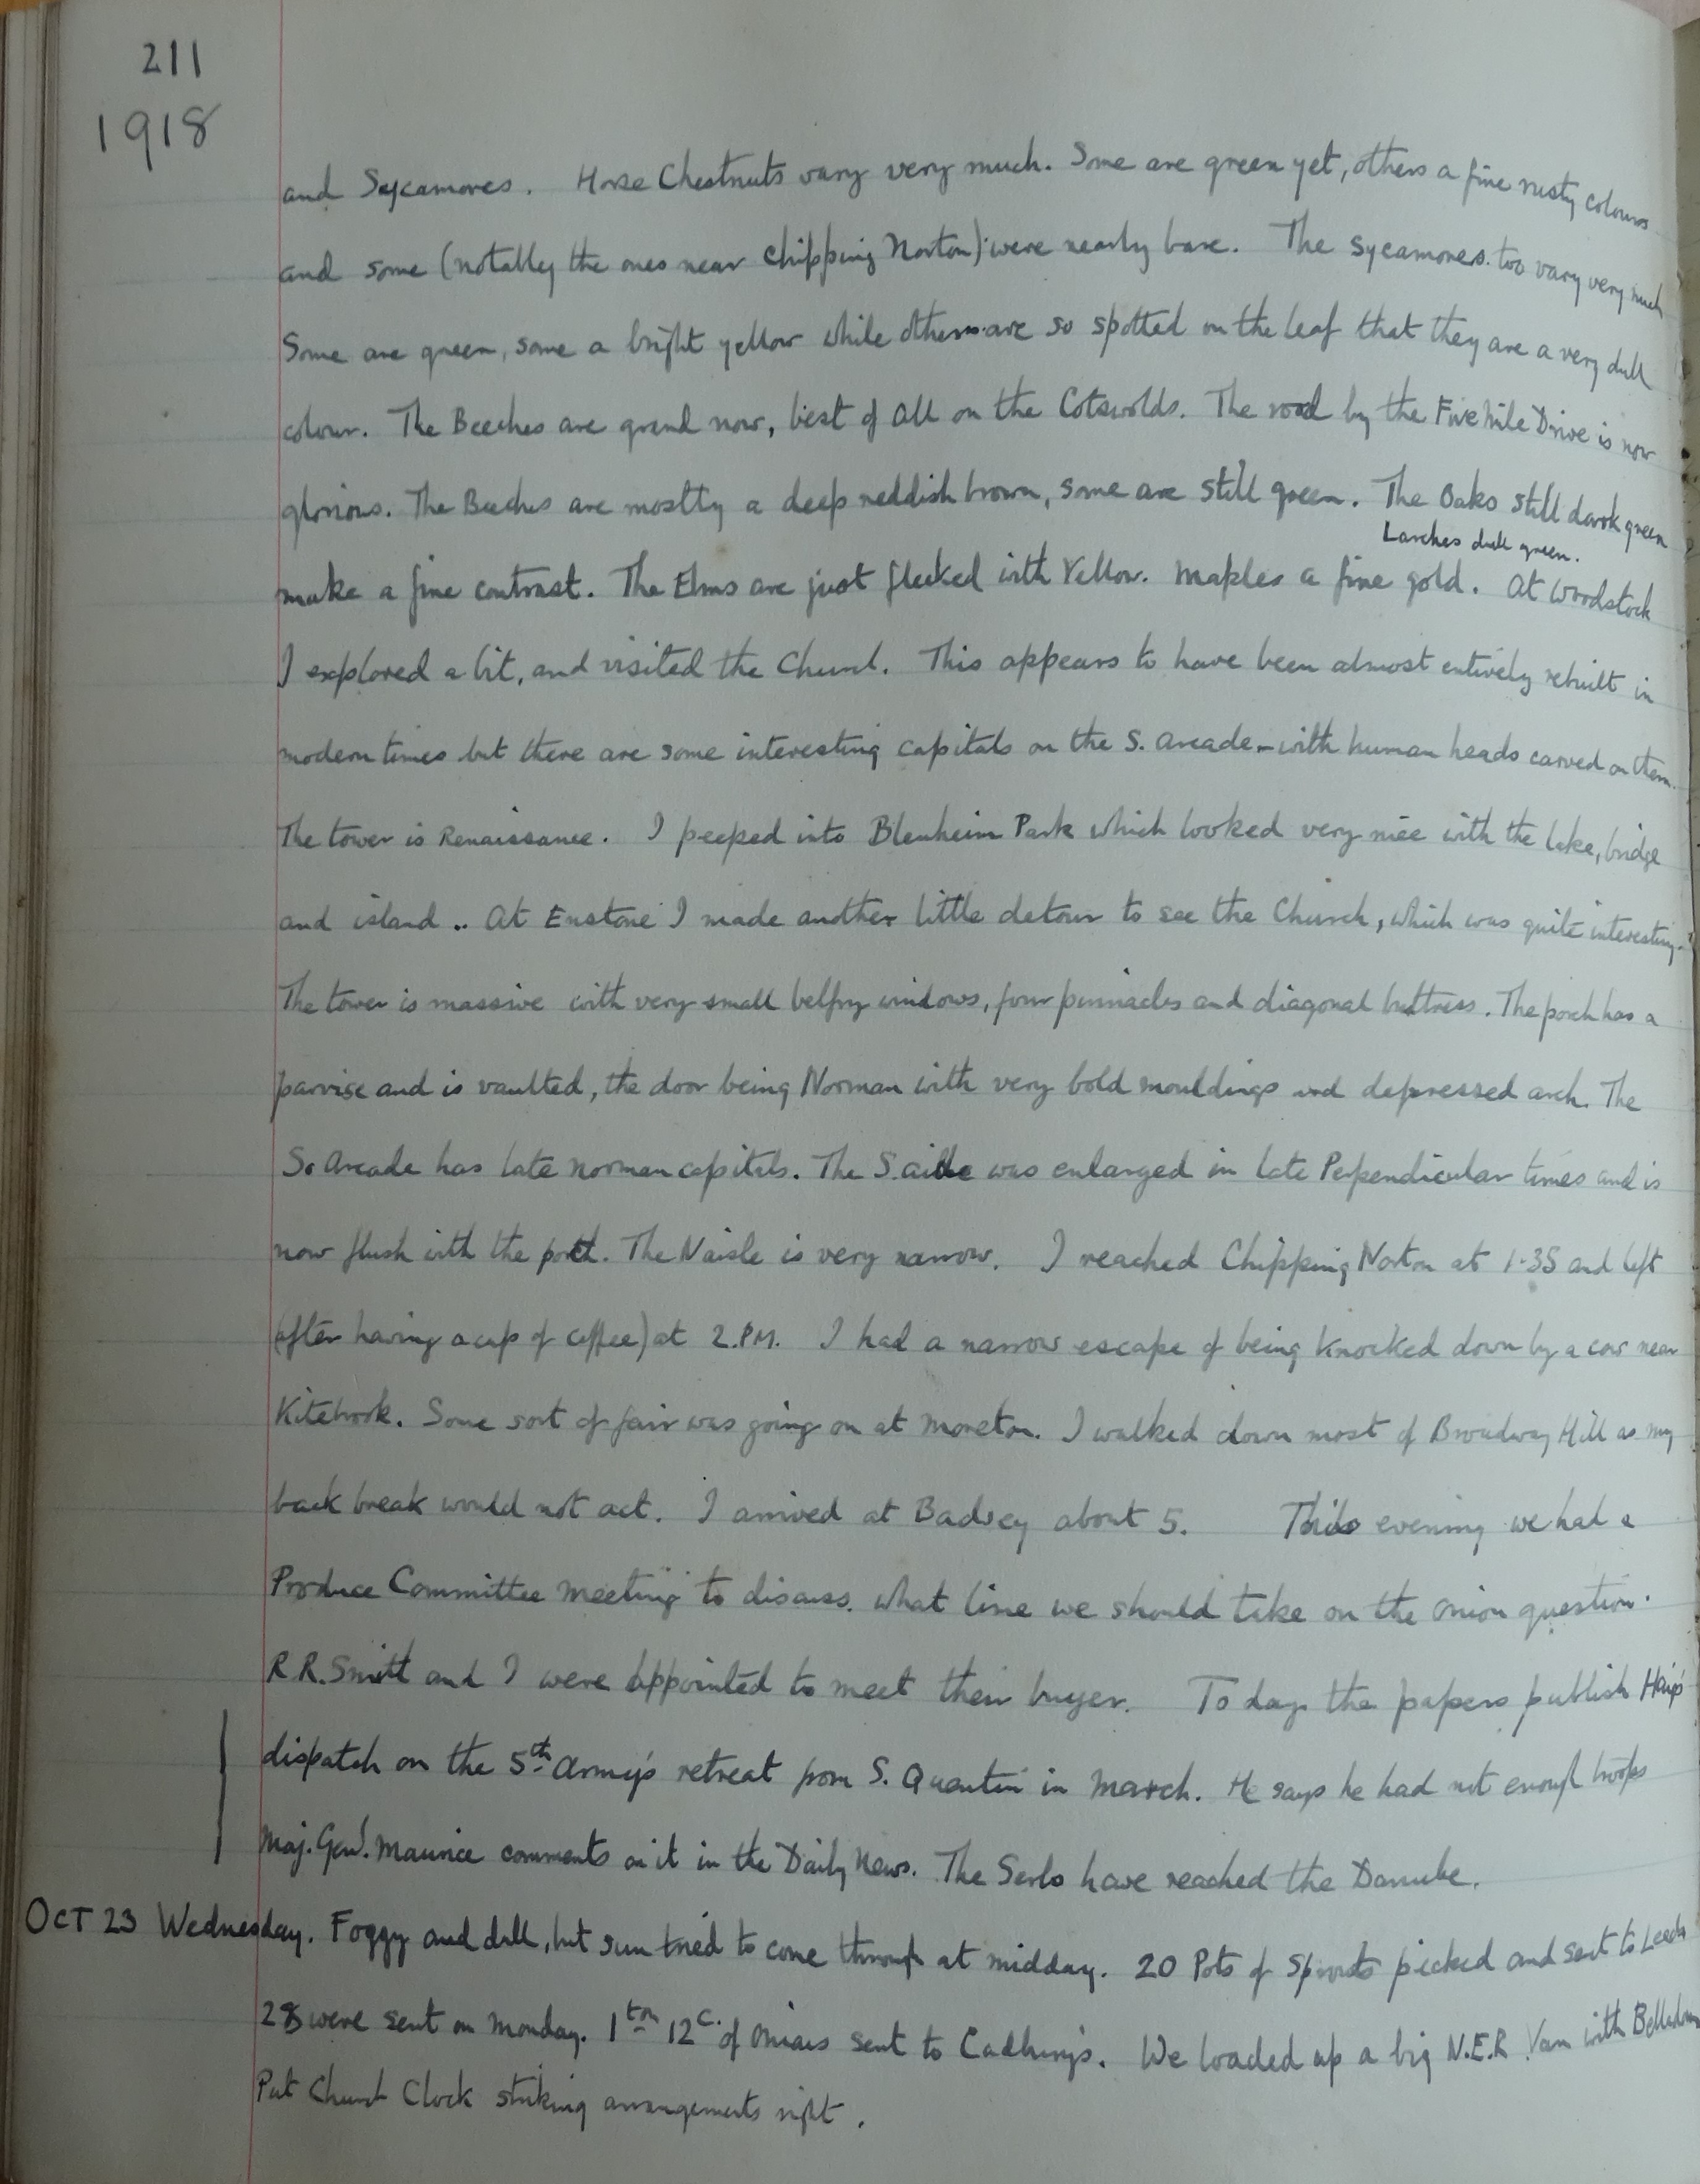 211
1918
and Sycamores. Horse Chestnuts vary very much. Some are green yet, others a fine rusty colours
and some (notably the ones near Chipping Norton) were nearly bare. The Sycamores too vary very much
Some are green, some a bright yellow while others are so spotted on the leaf that they are a very dull
colour. The Beeches are grand now, best of all on the Cotswolds. The road by the Five Mile Drive is now
glorious. The Beeches are mostly a deep reddish brown, some are still green. The Oaks still dark green
Larches dull green.
make a fine contrast. The Elms are just flecked with Yellow. Maples a fine gold. At Woodstock
I explored a bit, and visited the Church. This appears to have been almost entirely rebuilt in
modern times but there are some interesting capitals on the S. arcade - with human heads carved on them.
The tower is Renaissance. I peeped into Blenheim Park which looked very nice with the lake, bridge
and island.. At Enstone I made another little detour to see the Church, which was quite interesting.
The tower is massive with very small belfry windows, four pinnacles and diagonal buttress. The porch has a
parvise and is vaulted, the door being Norman with very bold mouldings and depressed arch. The
So Arcade has late Norman capitals. The S. aisle was enlarged in late Perpendicular times and is
now flush with the porch. The N aisle is very narrow. I reached Chipping Norton at 1.35 and left
(after having a cup of coffee) at 2.P.M. I had a narrow escape of being knocked down by a car near
Kitebrook. Some sort of fair was going on at Moreton. I walked down most of Broadway Hill as my
back break would not act. I arrived at Badsey about 5. This evening we had a
Produce Committee meeting to discuss what line we should take on the onion question.
R.R. Smith and I were appointed to meet their buyer. To day the papers publish Haig's
dispatch on the 5th Army's retreat from S. Quentin in March. He says he had not enough troops
Maj. Genl. Maurice comments on it in the Daily News. The Serbs have reached the Danube.
OCT 23 Wednesday. Foggy and dull, but sun tried to come through at midday. 20 Pots of Sprouts picked and sent to Leeds
28 were sent on Monday. 1 ton 12 c. of onions sent to Cadbury's. We loaded up a big N.E.R Van with
Put Church Clock striking arrangements right.